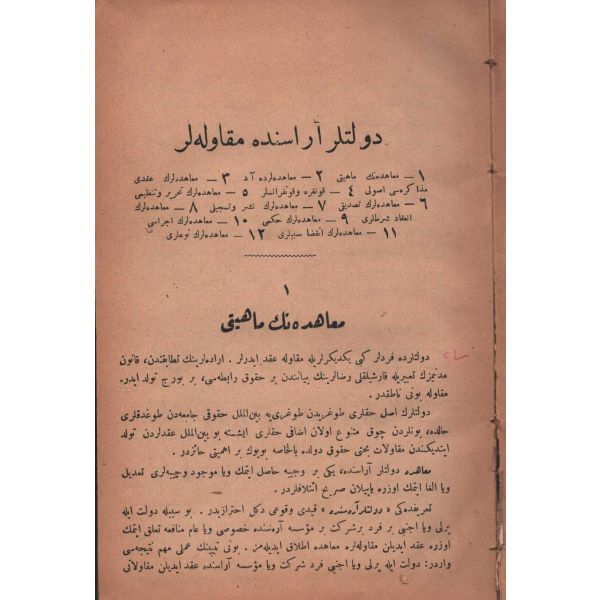 دولتلر آراسنده مقاوله‌لر
١ — معاهده‌نك ماهیتی ٢ — معاهده‌لرده آد ٣ — معاهده‌لرك عقدی
مذاكره‌سی اصولی ٤ — قونغره وقونفرانسلر ٥ — معاهده‌لرك تحریر وتنظیمی
٦ — معاهده‌لرك تصدیقی ٧ — معاهده‌لرك نشر وتسجیلی ٨ — معاهده‌لرك
انعقاد شرطلری ٩ — معاهده‌لرك حكمی ١٠ — معاهده‌لرك اجراسی
١١ — معاهده‌لرك انقضا سببلری ١٢ — معاهده‌لرك نوعلری
١
معاهده‌نك ماهیتی
دولتلرده فردلر كبی یكدیكرلریله مقاوله عقد ایدرلر . اراده‌لرینك تطابقندن، قانون
مدنیمزك تعبیریله قارشیلقلی رضالرینك بیانندن بر حقوق رابطه‌سی، بر بورج تولد ایدر.
مقاوله بونی ناطقدر.
دولتلرك اصل حقلری طوغریدن طوغری‌یه بین‌الملل حقوقی جامعه‌دن طوغدقلری
حالده، بونلردن چوق متنوع اولان اضافی حقلری ایشته بو بین‌الملل عقدلردن تولد
ایتدیكندن مقاولات بحثی حقوق دولده بالخاصه بویوك بر اهمیتی حائزدر.
معاهده دولتلر آراسنده، یكی بر وجیبه حاصل ایتمك ویا موجود وجیبه‌لری تعدیل
ویا الغا ایتمك اوزره یاپیلان صریح ائتلافلردر .
تعریفده‌كی « دولتلر آره‌سنده » قیدی وقوعی دكل احترازیدر . بو سببله دولت ایله
یرلی ویا اجنبی بر فرد بر شركت بر مؤسسه آره‌سنده خصوصی ویا عام منافعه تعلق ایتمك
اوزره عقد ایدیلن مقاوله‌لره معاهده اطلاق ایدیله‌مز . بونی تمییزك عملی مهم نتیجه‌سی
واردر: دولت ایله یرلی ویا اجنبی فرد شركت ویا مؤسسه آراسنده عقد ایدیلن مقاولاتی